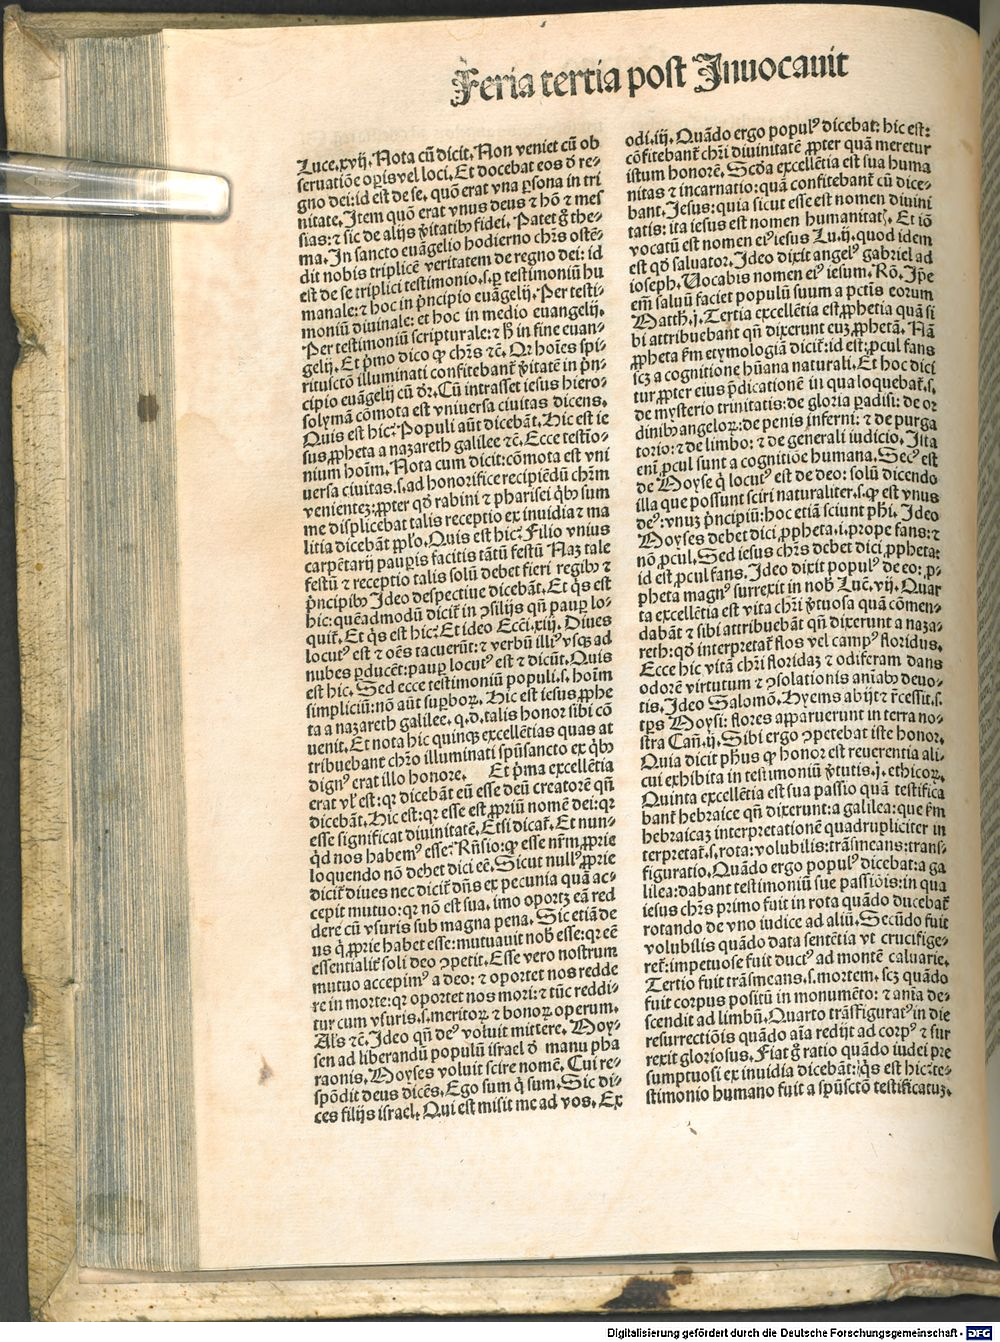 Feria tertia post Inuocauit
Luce.xvij. Nota cū dicit. Non veniet cū ob
seruatiōe oꝑis vel loci. Et docebat eos ꝺ re⸗
gno dei: id est de se. quō erat vna ꝑsona in tri
nitate. Item quō erat vnus deus ⁊ hō ⁊ mes
sias: ⁊ sic de alijs v̓itatibꝰ fidei. Patet g̊ the⸗
ma. In sancto euāgelio hodierno chr̄s ostē⸗
dit nobis triplicē veritatem de regno dei: id
est de se triplici testimonio. s. ꝑ testimoniū hu
manale: ⁊ hoc in p̄ncipio euāgelij. Per testi⸗
moniū diuinale: et hoc in medio euangelij.
Per testimoniū scripturale: ⁊ h̄ in fine euan⸗
gelij. Et p̄mo dico ꝙ chr̄s ⁊c̄. Qꝛ hoīes spi⸗
rituctō illuminati confitebant̄ v̓itatē in p̄n⸗
cipio euāgelij cū dꝛ̄. Cū intrasset iesus hiero⸗
solymā cōmota est vniuersa ciuitas dicens.
Quis est hic? Populi aūt dicebāt. Hic est ie
sus ꝓpheta a nazareth galilee ⁊c̄. Ecce testio⸗
nium hoīm. Nota cum dicit: cōmota est vni
uersa ciuitas. s. ad honorifice recipiēdū chr̄m
venientez: ꝓpter qd̄ rabini ⁊ pharisei qͥbꝰ sum
me displicebat talis receptio ex inuidia ⁊ ma
litia dicebāt pplo. Quis est hic? Filio vnius
carpētarij pauꝑis facitis tātū festū Naꝫ tale
festū ⁊ receptio talis solū debet fieri regibꝰ ⁊
p̄ncipibꝰ Ideo despectiue dicebāt. Et qͥs est
hic: quēadmodū dicit̄ in ꝯsilijs qn̄ pauꝑ lo⸗
quit̄. Et qͥs est hic? Et ideo Ecci. xiij. Diues
locutꝰ est ⁊ oēs tacuerūt: ⁊ verbū illiꝰ vsqꝫ ad
nubes ꝑducēt: pauꝑ locutꝰ est ⁊ dicūt. Quis
est hic. Sed ecce testimoniū populi. s. hoīm
simpliciū: nō aūt suꝑboꝝ. Hic est iesus ꝓphe
ta a nazareth galilee. q. d. talis honor sibi cō
uenit. Et nota hic quinqꝫ excellētias quas at
tribuebant chr̄o illuminati spūsancto ex qͥbꝰ
dignꝰ erat illo honore. Et p̄ma excellētia
erat vl̓ est: qꝛ dicebāt eū esse deū creatorē qn̄
dicebāt. Hic est: qꝛ esse est ꝓpriū nomē dei: qꝛ
esse significat diuinitatē. Etsi dicat̄. Et nun⸗
qͥd nos habemꝰ esse? Rn̄sio: ꝙ esse nr̄m ꝓprie
loquendo nō debet dici eē. Sicut nullꝰ ꝓprie
dicit̄ diues nec dicit̄ dn̄s ex pecunia quā ac⸗
cepit mutuo: qꝛ nō est sua. imo oportꝫ eā red
dere cū vsuris sub magna pena. Sic etiā de
us qͥ ꝓprie habet esse: mutuauit nobꝭ esse: qꝛ eē
essentialit̄ soli deo ꝯpetit. Esse vero nostrum
mutuo accepimꝰ a deo: ⁊ oportet nos redde
re in morte: qꝛ oportet nos mori: ⁊ tūc reddi⸗
tur cum vsuris. s. meritoꝝ ⁊ bonoꝝ operum.
Als ⁊c̄. Ideo qn̄ deꝰ voluit mittere. Moy⸗
sen ad liberandū populū israel ꝺ manu pha
raonis. Moyses voluit scire nomē. Cui re⸗
spōdit deus dicēs. Ego sum qͥ sum. Sic di⸗
ces filijs israel. Qui est misit me ad vos. Ex
odi. iij. Quādo ergo populꝰ dicebat: hic est:
cōfitebant̄ chr̄i diuinitatē ꝓpter quā meretur
istum honorē. Scd̄a excellētia est sua huma
nitas ⁊ incarnatio: quā confitebant̄ cū dice⸗
bant. Jesus: quia sicut esse est nomen diuini
tatis: ita iesus est nomen humanitatꝭ. Et iō
vocatū est nomen eiꝰ iesus Lu. ij. quod idem
est qd̄ saluator. Ideo dixit angelꝰ gabriel ad
ioseph. Uocabis nomen eiꝰ iesum. Rō. Ip̄e
em̄ saluū faciet populū suum a pctīs eorum
Matth. j. Tertia excellētia est ꝓphetia quā si
bi attribuebant qn̄ dixerunt euꝫ ꝓphetā. Nā
ꝓpheta ẜm etymologiā dicit̄: id est: ꝓcul fans
scꝫ a cognitione hūana naturali. Et hoc dici
tur ꝓpter eius p̄dicationē in qua loquebat̄. s.
de mysterio trinitatis: de gloria ꝑadisi: de or
dinibꝰ angeloꝝ: de penis inferni: ⁊ de purga
torio: ⁊ de limbo: ⁊ de generali iudicio. Ista
eni ꝓcul sunt a cognitiōe humana. Secꝰ est
de Moyse qͥ locutꝰ est de deo: solū dicendo
illa que possunt sciri naturaliter. s. ꝙ est vnus
deꝰ: vnuꝫ p̄ncipiū: hoc etiā sciunt phi. Ideo
Moyses debet dici ꝓpheta. i. prope fans: ⁊
nō ꝓcul. Sed iesus chr̄s debet dici ꝓpheta:
id est ꝓcul fans. Ideo dixit populꝰ de eo: ꝓ⸗
pheta magnꝰ surrexit in nobꝭ Luc̄. vij. Quar
ta excellētia est vita chr̄i v̓tuosa quā cōmen⸗
dabāt ⁊ sibi attribuebāt qn̄ dixerunt a naza⸗
reth: qd̄ interpretat̄ flos vel campꝰ floridus.
Ecce hic vitā chr̄i floridaꝫ ⁊ odiferam dans
odorē virtutum ⁊ ꝯsolationis aīabꝰ deuo⸗
tis. Ideo Salomō. Hyems abijt ⁊ r̄cessit. s.
tp̄s Moysi: flores apparuerunt in terra no⸗
stra Cañ. ij. Sibi ergo ꝯpetebat iste honor.
Quia dicit phūs ꝙ honor est reuerentia ali⸗
cui exhibita in testimoniū v̓tutis. j. ethicoꝝ.
Quinta excellētia est sua passio quā testifica
bant hebraice qn̄ dixerunt: a galilea: que ẜm
hebraicaꝫ interpretationē quadrupliciter in
terpretat̄. s. rota: volubilis: trāsmeans: trans⸗
figuratio. Quādo ergo populꝰ dicebat: a ga
lilea: dabant testimoniū sue passiōis: in qua
iesus chr̄s primo fuit in rota quādo ducebat̄
rotando de vno iudice ad aliū. Secūdo fuit
volubilis quādo data sentētia vt crucifige⸗
ret̄: impetuose fuit ductꝰ ad montē caluarie.
Tertio fuit trāsmeans. s. mortem. scꝫ quādo
fuit corpus positū in monumēto: ⁊ anīa de⸗
scendit ad limbū. Quarto trāsfiguratꝰ in die
resurrectiōis quādo aīa redijt ad corpꝰ ⁊ sur
rexit gloriosus. Fiat g̊ ratio quādo iudei pre
sumptuosi ex inuidia dicebāt: qͥs est hic: te⸗
stimonio humano fuit a spūsctō testificatuꝫ.
Digitalisierung gefördert durch die Deutsche Forschungsgemeinschaft - DFG